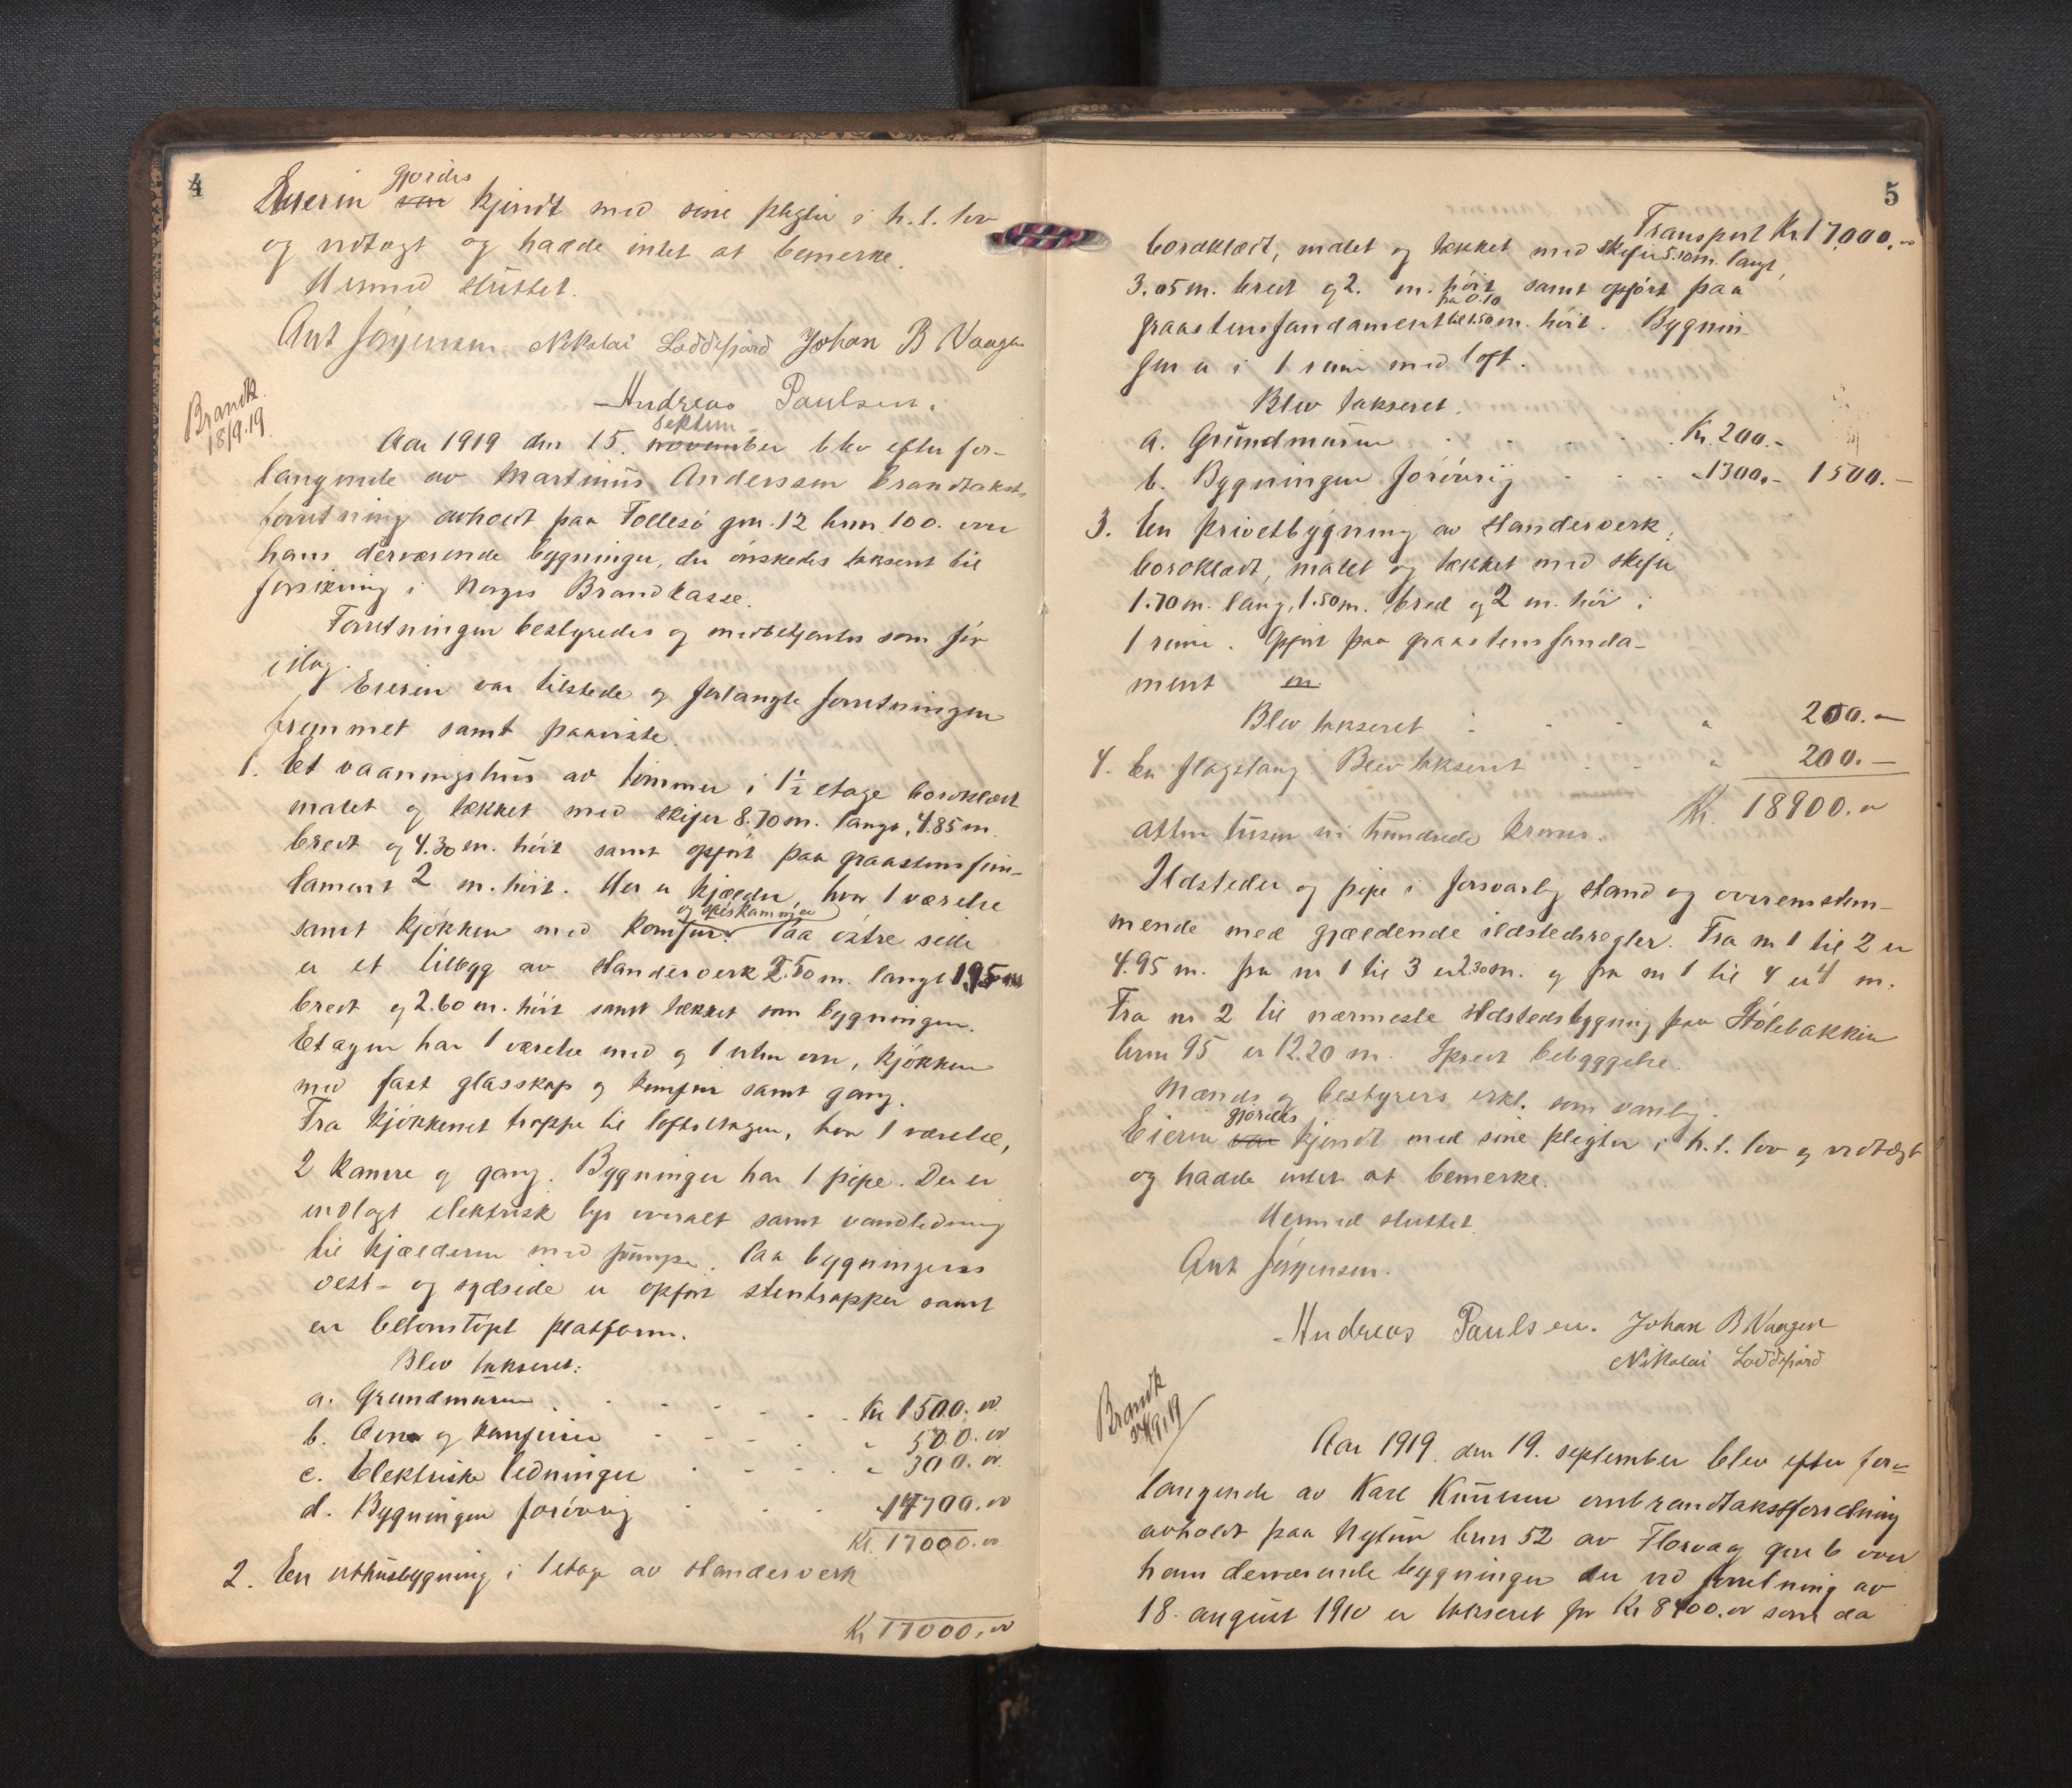 4
gjordes
Eieren var kjendt med sine pligter i h. t. lov
og vedtægt og hadde intet at bemerke.
Hermed sluttet.
Ant Jörgensen Nikolai Loddefjord Johan B Vaagen
Andreas Paulsen.
Brandk.
18/9.19.
septem
Aar 1919 den 15. november blev efter for-
langende av Martinus Anderssen brandtakst-
forretning avholdt paa Follesö gnr. 12 brnr 100. over
hans derværende bygninger, der önskedes taksert til
forsikring i Norges Brandkasse.
Forretningen bestyredes og medbetjentes som för
idag.
Eieren var tilstede og forlangte forretningen
fremmet samt paaviste.
1. Et vaaningshus av tömmer i 1½ etage bordklædt
malet og tækket med skifer 8.70 m. langt, 4.85 m.
bredt og 4.30 m. höit samt opfört paa graastensfun-
dament 2 m. höit. Her er kjælder, hvor 1 værelse
og spiskammer
samt kjökken med komfur. Paa östre side
er et tilbygg av standerverk 2.50 m. langt 1.95 m
bredt og 2.60 m. höit samt tækket som bygningen.
Etagen har 1 værelse med og 1 uten ovn, kjökken
med fast glasskap og komfur samt gang.
Fra kjökkenet trappe til loftsetagen, hvor 1 værelse,
2 kamre og gang. Bygningen har 1 pipe. Der er
indlagt elektrisk lys overalt samt vandledning
til kjælderen med pumpe. Paa bygningens
vest- og sydside er opfört stentrapper samt
en betonstöpt platform.
Blev takseret:
a. Grundmuren . - - - - - Kr 1500.00
b. Ovne og komfurer - - - - " 500.00
c. Elektriske ledninger - - - - " 300.00
d. Bygningen forövrig - - - " 14700.00
Kr. 17000.00
2. En uthusbygning i 1 etage av standerverk
Kr 17000.00
5
Transport Kr 17000.00
bordklædt, malet og tækket med skifer 5.10 m. langt,
3.05 m. bredt og 2. m. höit samt opfört paa
fra 0.10
graastensfundament til 1.50 m. höit. Bygnin-
gen er i 1 rum med loft.
Blev takseret.
a. Grundmuren - - - - Kr. 200.-
b. Bygningen forövrig - - - " 1300.- 1500.-
3. En privetbygning av standerverk,
bordklædt, malet og tækket med skifer
1.70 m. lang, 1.50 m. bred og 2 m. höi i
1 rum. Opfört paa graastensfunda-
ment m.
Blev takseret - - - " 200.-
4. En flagstang. Blev takseret - - " 200.-
Kr. 18900.00
Atten tusen ni hundrede kroner.
Ildsteder og pipe i forsvarlig stand og overensstem-
mende med gjældende ildstedsregler. Fra nr 1 til 2 er
4.95 m. fra nr 1 til 3 er 2.30 m. og fra nr 1 til 4 er 4 m.
Fra nr 2 til nærmeste ildstedsbygning paa Stölebakken
brnr 95 er 12.20 m. Spredt bebyggelse.
Mænds og bestyrers erkl. som vanlig.
gjordes
Eieren var kjendt med sine pligter i h. t. lov og vedtægt
og hadde intet at bemerke.
Hermed sluttet.
Ant Jörgensen.
Andreas Paulsen. Johan B Vaagen
Nikolai Loddefjord
Brandk
9.19
Aar 1919. den 19. september blev efter for-
langende av Karl Knutsen ombrandtakstforretning
avholdt paa Nytun brnr 52 av Florvaag gnr 6 over
hans derværende bygninger der ved forretning av
18. august 1910 er takseret for Kr 8400.00 som da